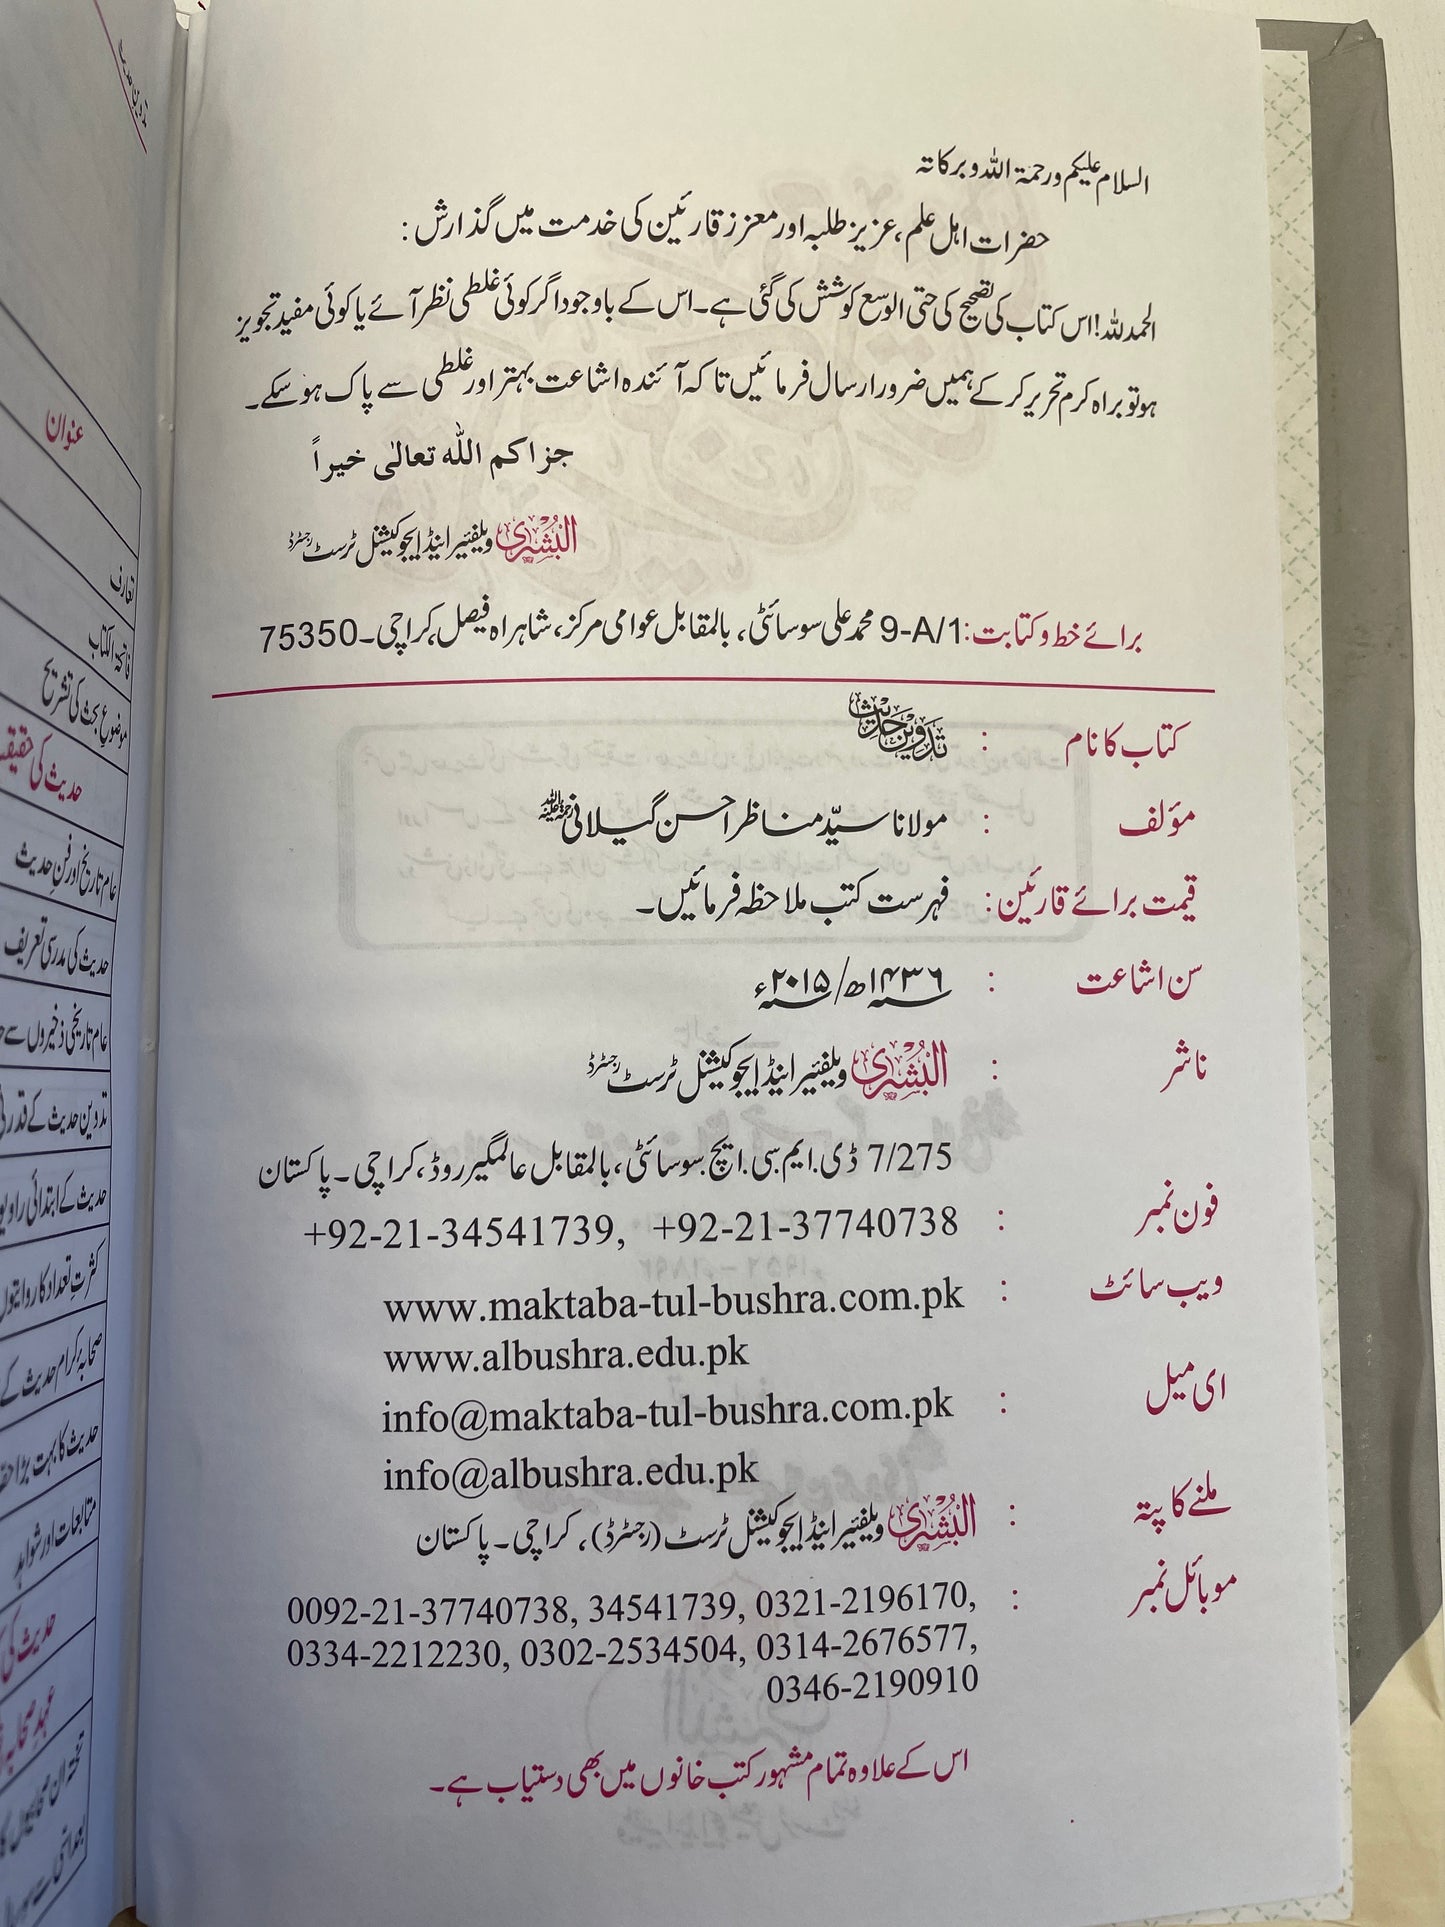 السلام علیکم ورحمۃ اللہ وبرکاتہ
حضرات اہل علم، عزیز طلبہ اور معزز قارئین کی خدمت میں گذارش:
الحمدللہ! اس کتاب کی تصحیح کی حتی الوسع کوشش کی گئی ہے۔ اس کے باوجود اگر کوئی غلطی نظر آئے یا کوئی مفید تجویز
ہو تو براہ کرم تحریر کر کے ہمیں ضرور ارسال فرمائیں تاکہ آئندہ اشاعت بہتر اور غلطی سے پاک ہو سکے۔
جزاکم اللہ تعالٰی خیراً
البشریٰ ویلفئیر اینڈ ایجوکیشنل ٹرسٹ رجسٹرڈ
برائے خط و کتابت: 9-A/1 محمد علی سوسائٹی، بالمقابل عوامی مرکز، شاہراہ فیصل، کراچی۔ 75350
کتاب کا نام : تدوین حدیث
مؤلف : مولانا سیّد مناظر احسن گیلانی رحمۃ اللہ علیہ
قیمت برائے قارئین: فہرست کتب ملاحظہ فرمائیں۔
سن اشاعت : ۱۴۳۶ھ/ ۲۰۱۵ء
ناشر : البشریٰ ویلفئیر اینڈ ایجوکیشنل ٹرسٹ رجسٹرڈ
7/275 ڈی.ایم.سی.ایچ سوسائٹی، بالمقابل عالمگیر روڈ، کراچی۔ پاکستان
فون نمبر : +92-21-34541739, +92-21-37740738
ویب سائٹ : www.maktaba-tul-bushra.com.pk
www.albushra.edu.pk
ای میل : info@maktaba-tul-bushra.com.pk
info@albushra.edu.pk
ملنے کا پتہ : البشریٰ ویلفئیر اینڈ ایجوکیشنل ٹرسٹ (رجسٹرڈ)، کراچی۔ پاکستان
موبائل نمبر : 0092-21-37740738, 34541739, 0321-2196170,
0334-2212230, 0302-2534504, 0314-2676577,
0346-2190910
اس کے علاوہ تمام مشہور کتب خانوں میں بھی دستیاب ہے۔
عنوان
تعارف
فاتحۃ الکتاب
موضوعِ بحث کی تشریح
حدیث کی
عام تاریخ اور فن حدیث
حدیث کی مدرسی تعریف
عام تاریخی ذخیروں سے
تدوین حدیث کے قدرتی
حدیث کے ابتدائی
کثرتِ تعداد کا
صحابۂ کرام حدیث کے
حدیث کا بہت بڑا
متابعات اور شواہد
حدیث کی
عہدِ صحابہ